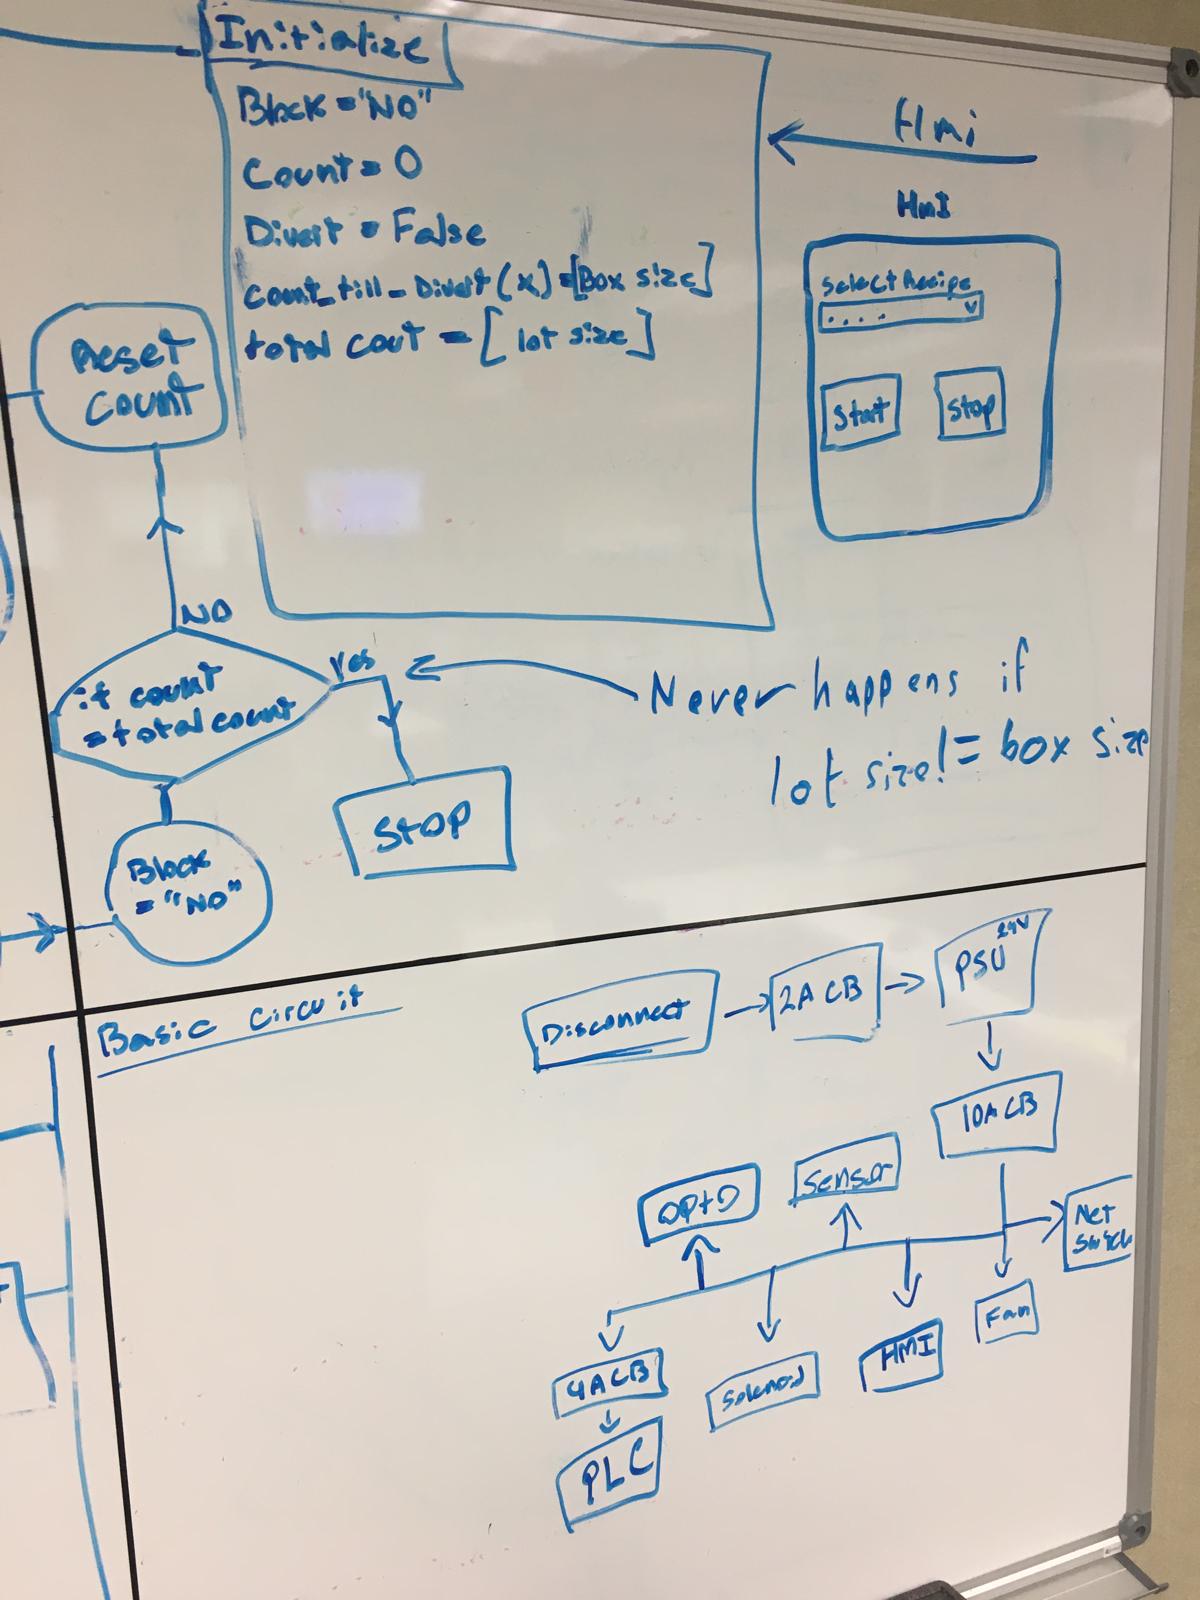 Initialize
Block = "NO"
Count = 0
Divert = False
count_till_Divert (x) = [Box size]
total cout = [lot size]
Hmi
HmI
Select Recipe
. . . . v
Start
Stop
Reset
Count
NO
if count
= total count
Yes
Never happens if
lot size != box size
STOP
Block
= "NO"
Basic circuit
Disconnect
2A CB
PSU 24V
10A CB
OPTO
Sensor
Net
Switch
Fan
HMI
Solenoid
4A CB
PLC